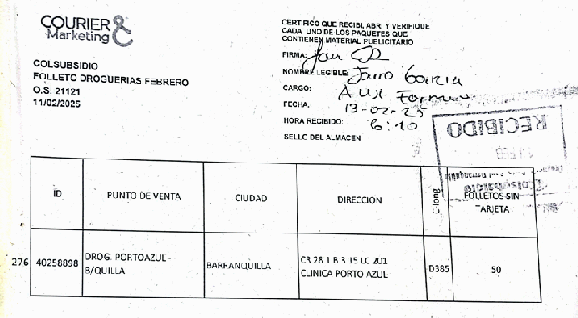 COURIER &
Marketing
COLSUBSIDIO
FOLLETO DROGUERIAS FEBRERO
O.S. 21121
11/02/2025
CERTIFICO QUE RECIBI, ABRI Y VERIFIQUE
CADA UNO DE LOS PAQUETES QUE
CONTIENEN MATERIAL PUBLICITARIO
FIRMA:
NOMBRE LEGIBLE: Garcia
CARGO: Aux
FECHA: 13-02-25
HORA RECIBIDO: 6:10
SELLO DEL ALMACEN
RECIBIDO
ID PUNTO DE VENTA CIUDAD DIRECCION FOLLETOS SIN TARJETA
276 40258898 DROG. PORTOAZUL- B/QUILLA BARRANQUILLA CLINICA PORTO AZUL D385 50